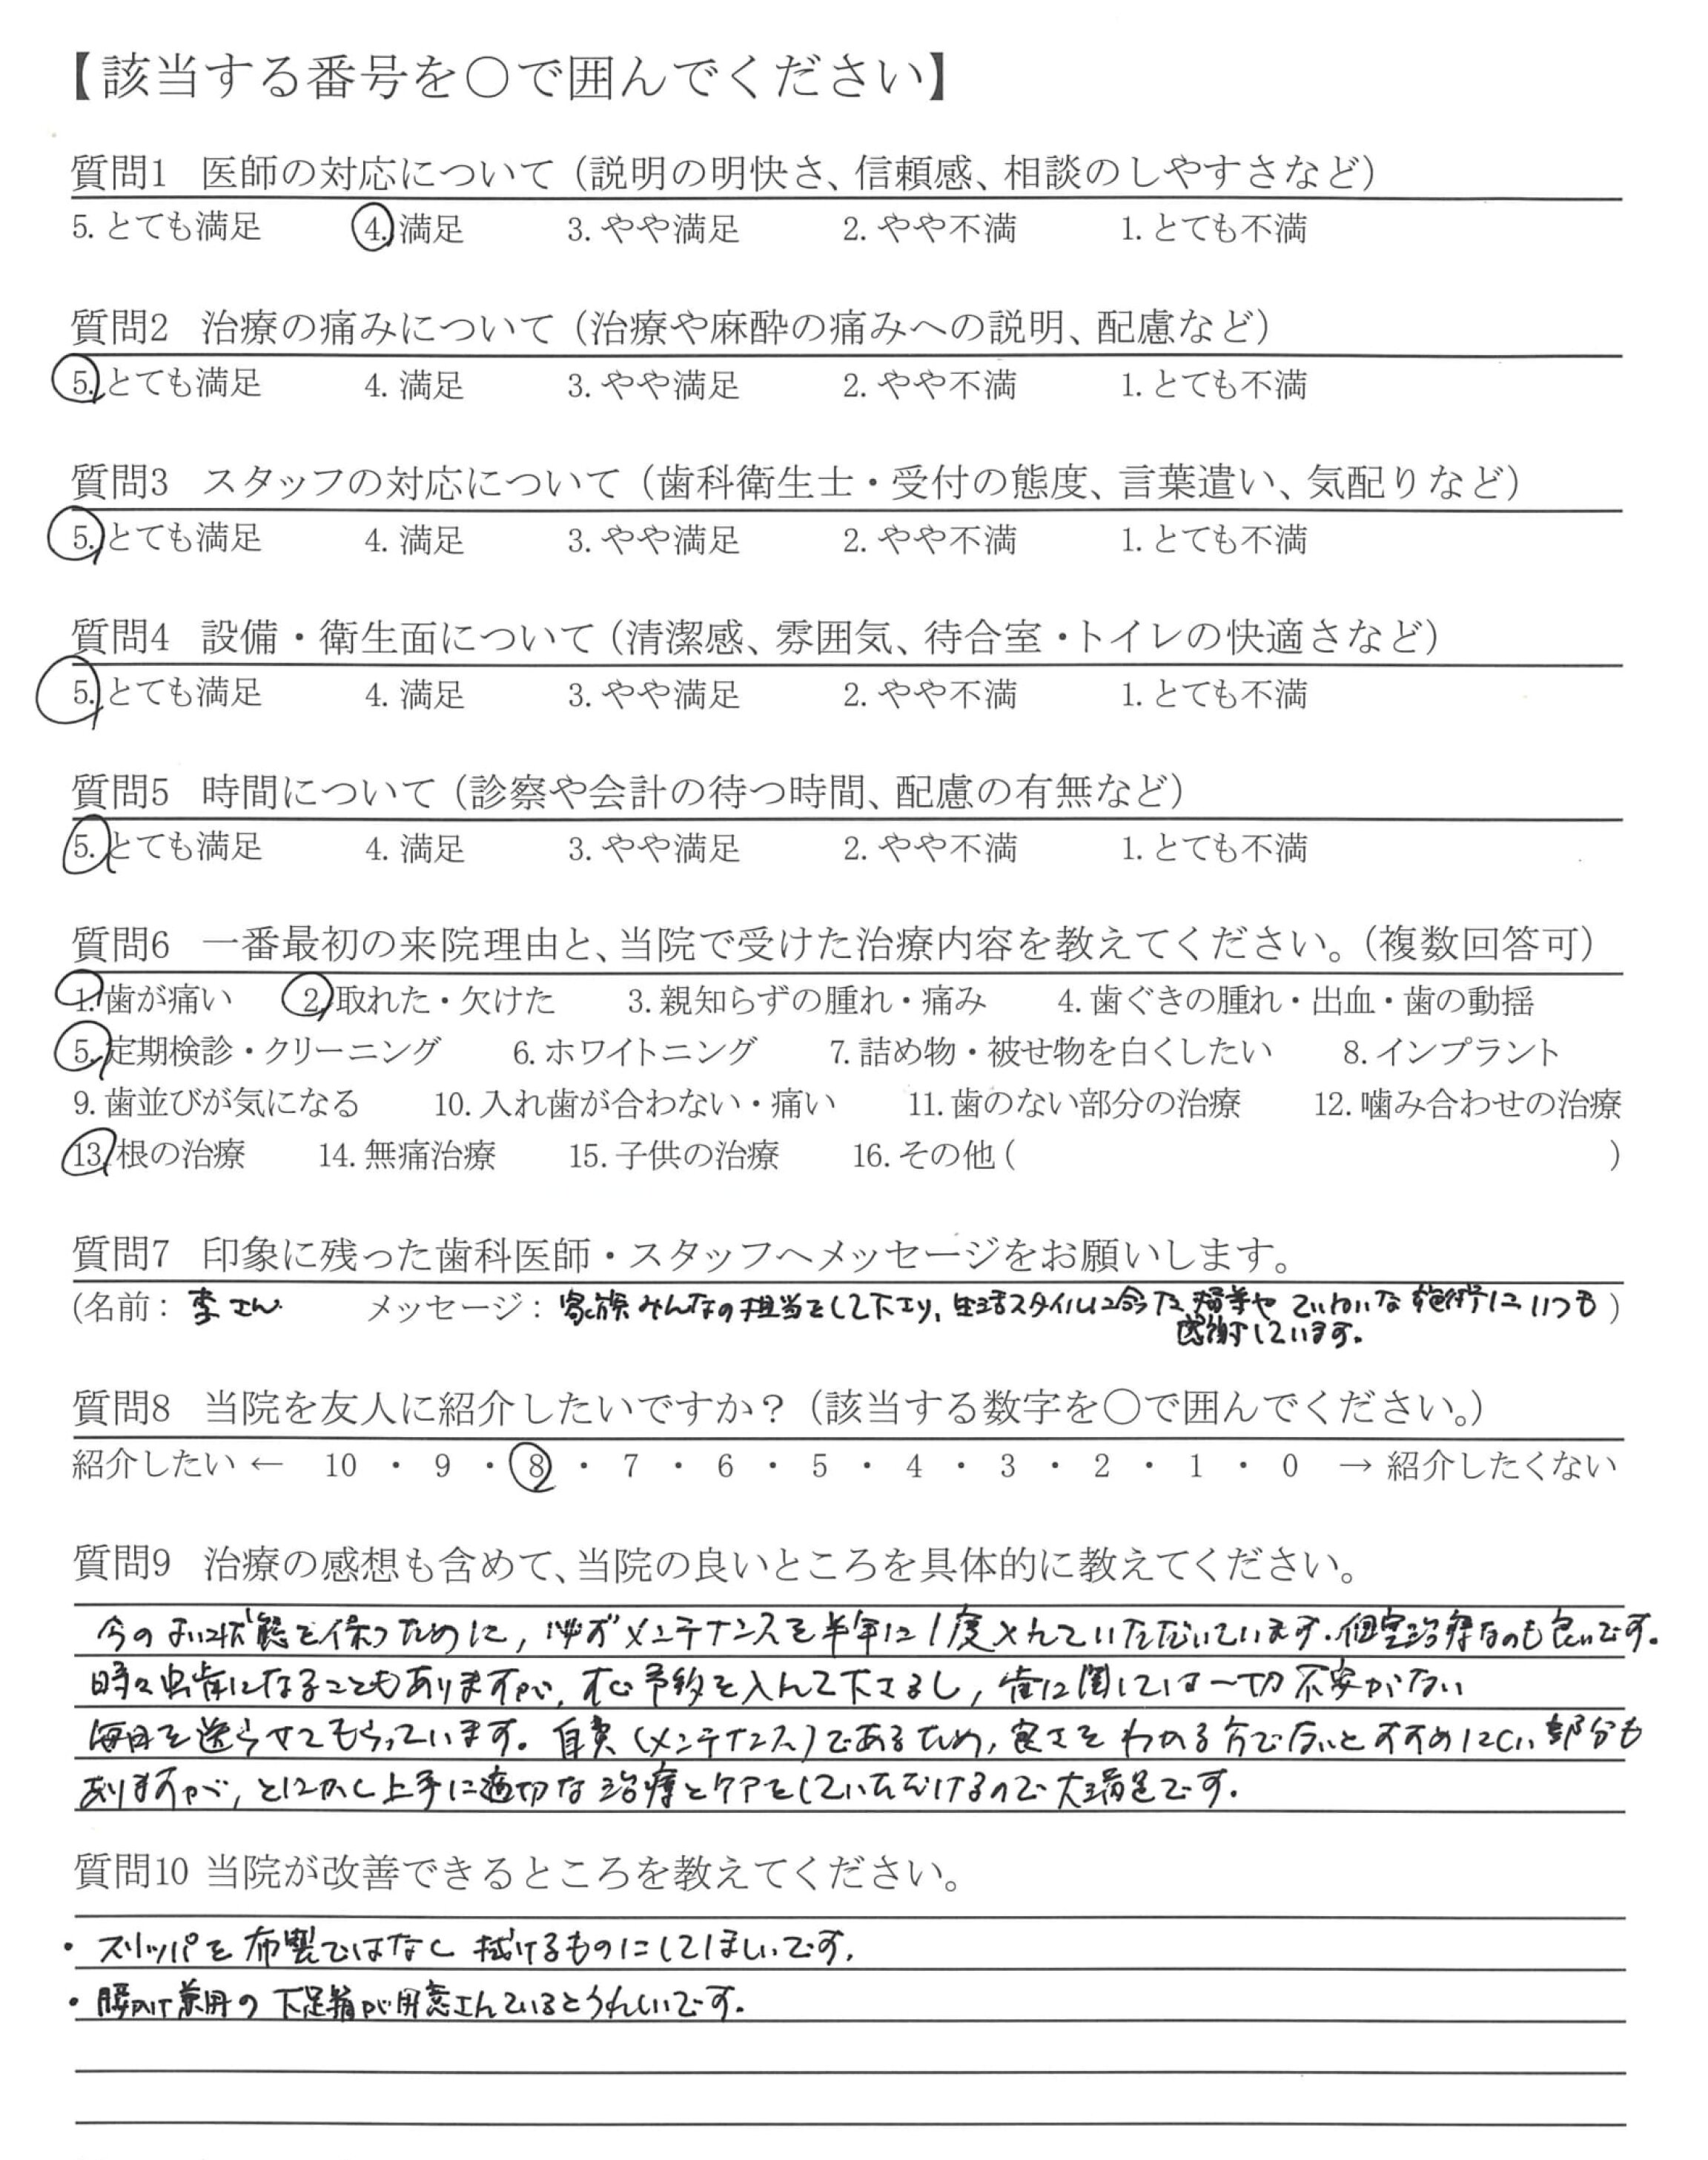 【該当する番号を〇で囲んでください】
質問1 医師の対応について（説明の明快さ、信頼感、相談のしやすさなど）
5. とても満足 4. 満足 3. やや満足 2. やや不満 1. とても不満
質問2 治療の痛みについて（治療や麻酔の痛みへの説明、配慮など）
5. とても満足 4. 満足 3. やや満足 2. やや不満 1. とても不満
質問3 スタッフの対応について（歯科衛生士・受付の態度、言葉遣い、気配りなど）
5. とても満足 4. 満足 3. やや満足 2. やや不満 1. とても不満
質問4 設備・衛生面について（清潔感、雰囲気、待合室・トイレの快適さなど）
5. とても満足 4. 満足 3. やや満足 2. やや不満 1. とても不満
質問5 時間について（診察や会計の待つ時間、配慮の有無など）
5. とても満足 4. 満足 3. やや満足 2. やや不満 1. とても不満
質問6 一番最初の来院理由と、当院で受けた治療内容を教えてください。（複数回答可）
1. 歯が痛い 2. 取れた・欠けた 3. 親知らずの腫れ・痛み 4. 歯ぐきの腫れ・出血・歯の動揺
5. 定期検診・クリーニング 6. ホワイトニング 7. 詰め物・被せ物を白くしたい 8. インプラント
9. 歯並びが気になる 10. 入れ歯が合わない・痛い 11. 歯のない部分の治療 12. 噛み合わせの治療
13. 根の治療 14. 無痛治療 15. 子供の治療 16. その他（ ）
質問7 印象に残った歯科医師・スタッフへメッセージをお願いします。
（名前：李さん メッセージ：家族みんなの担当をして下さり、生活スタイルに合った 提案や ていねいな 施術に いつも）
感謝しています。
質問8 当院を友人に紹介したいですか？（該当する数字を〇で囲んでください。）
紹介したい ← 10 ・ 9 ・ 8 ・ 7 ・ 6 ・ 5 ・ 4 ・ 3 ・ 2 ・ 1 ・ 0 → 紹介したくない
質問9 治療の感想も含めて、当院の良いところを具体的に教えてください。
今のよい状態を保つために、必ずメンテナンスを半年に1度入れていただいています。個室治療なのも良いです。
時々虫歯になることもありますが、すぐ予約を入れて下さるし、歯に関しては一切不安がない
毎日を送らせてもらっています。自費（メンテナンス）であるため、良さをわかる方でないとすすめにくい部分も
ありますが、とにかく上手に適切な治療とケアをしていただけるので大満足です。
質問10 当院が改善できるところを教えてください。
・スリッパを布製ではなく拭けるものにしてほしいです。
・腰かけ兼用の下足箱が用意されているとうれしいです。